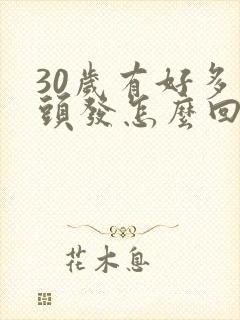 30歲有好多
頭發怎麼回
花木息